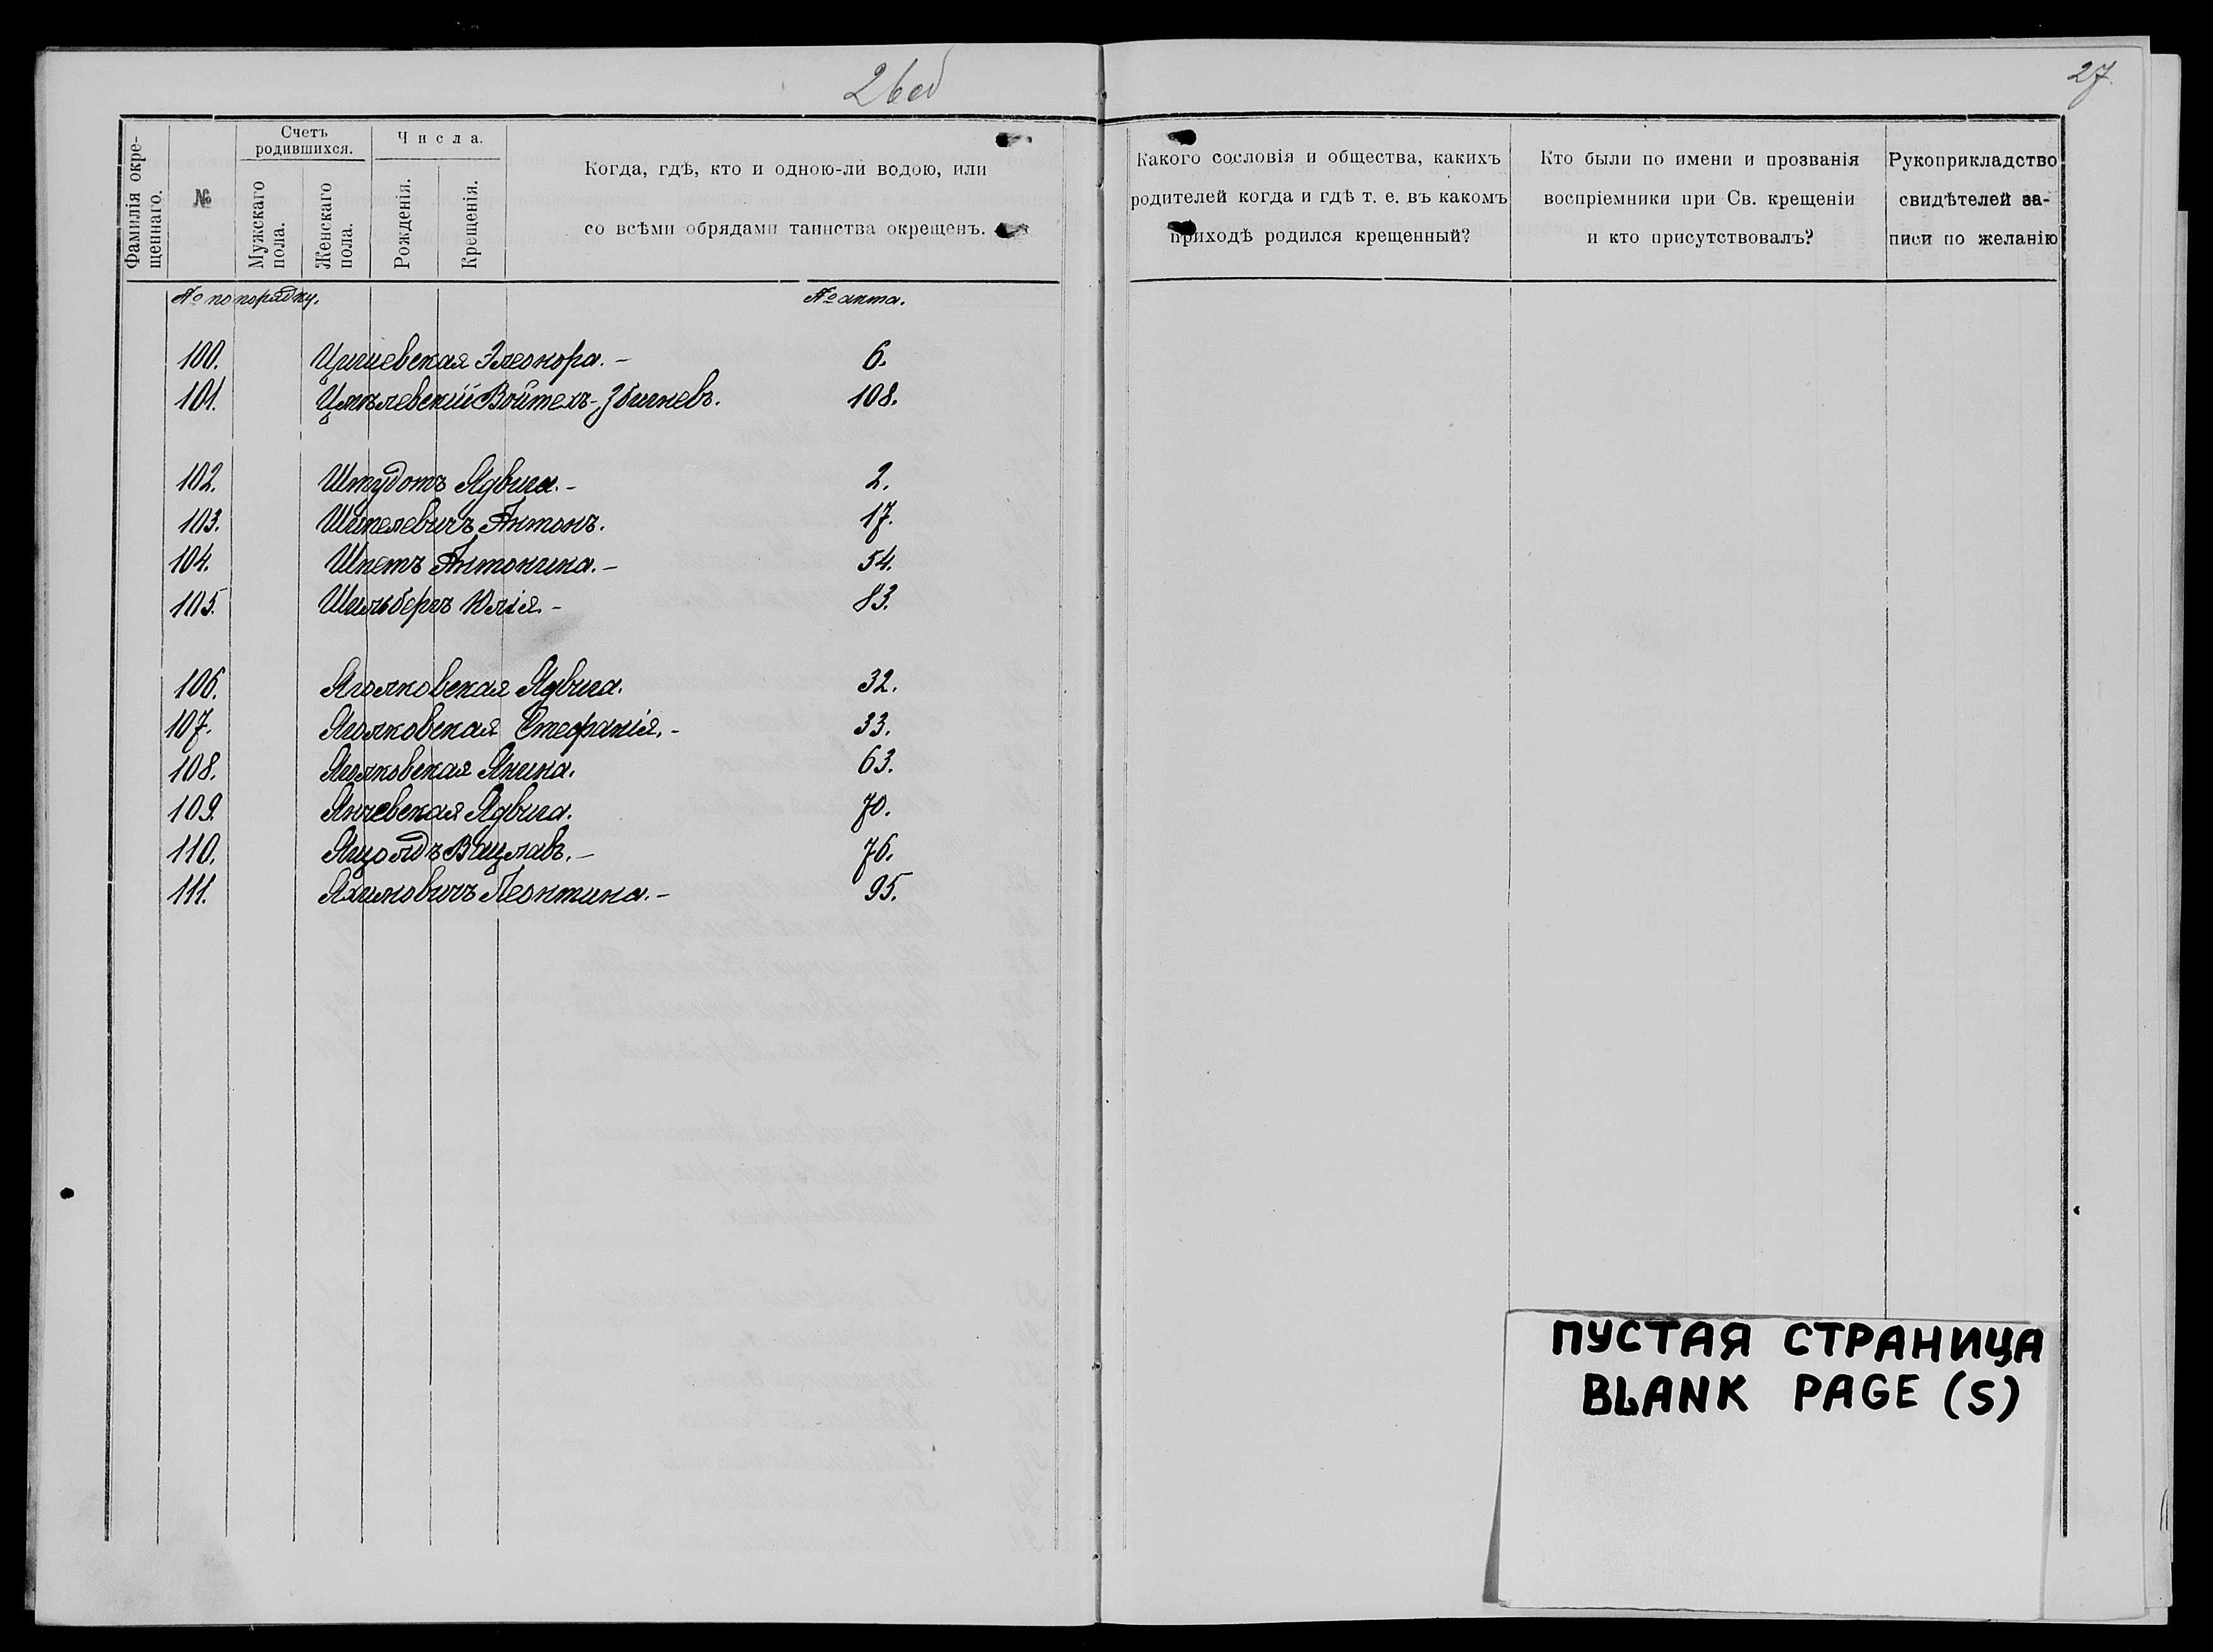 26 об
27.
Фамилія окре-
щеннаго.
№
Счетъ
родившихся.
Мужскаго
пола.
Женскаго
пола.
Числа.
Рожденія.
Крещенія.
Когда, гдѣ, кто и одною-ли водою, или
со всѣми обрядами таинства окрещенъ.
Какого сословія и общества, какихъ
родителей когда и гдѣ т. е. въ какомъ
приходѣ родился крещенный?
Кто были по имени и прозванія
воспріемники при Св. крещеніи
и кто присутствовалъ?
Рукоприкладство
свидѣтелей за-
писи по желанію
№ по порядку. № акта.
100. Элеонора. – 6.
101. Войтехъ-Збигневъ. 108.
102. Штудотъ Ядвига. – 2.
103. Антонъ. 17.
104. Шпетъ Антонина. – 54.
105. Шильбергъ Юлія. – 83.
106. Яголковская Ядвига. 32.
107. Яголковская Стефанія. – 33.
108. Яголковская Янина. 63.
109. Янчевская Ядвига. 70.
110. Вацлавъ. – 76.
111. Яхимовичъ Леонтина. – 95.
ПУСТАЯ СТРАНИЦА
BLANK PAGE (S)